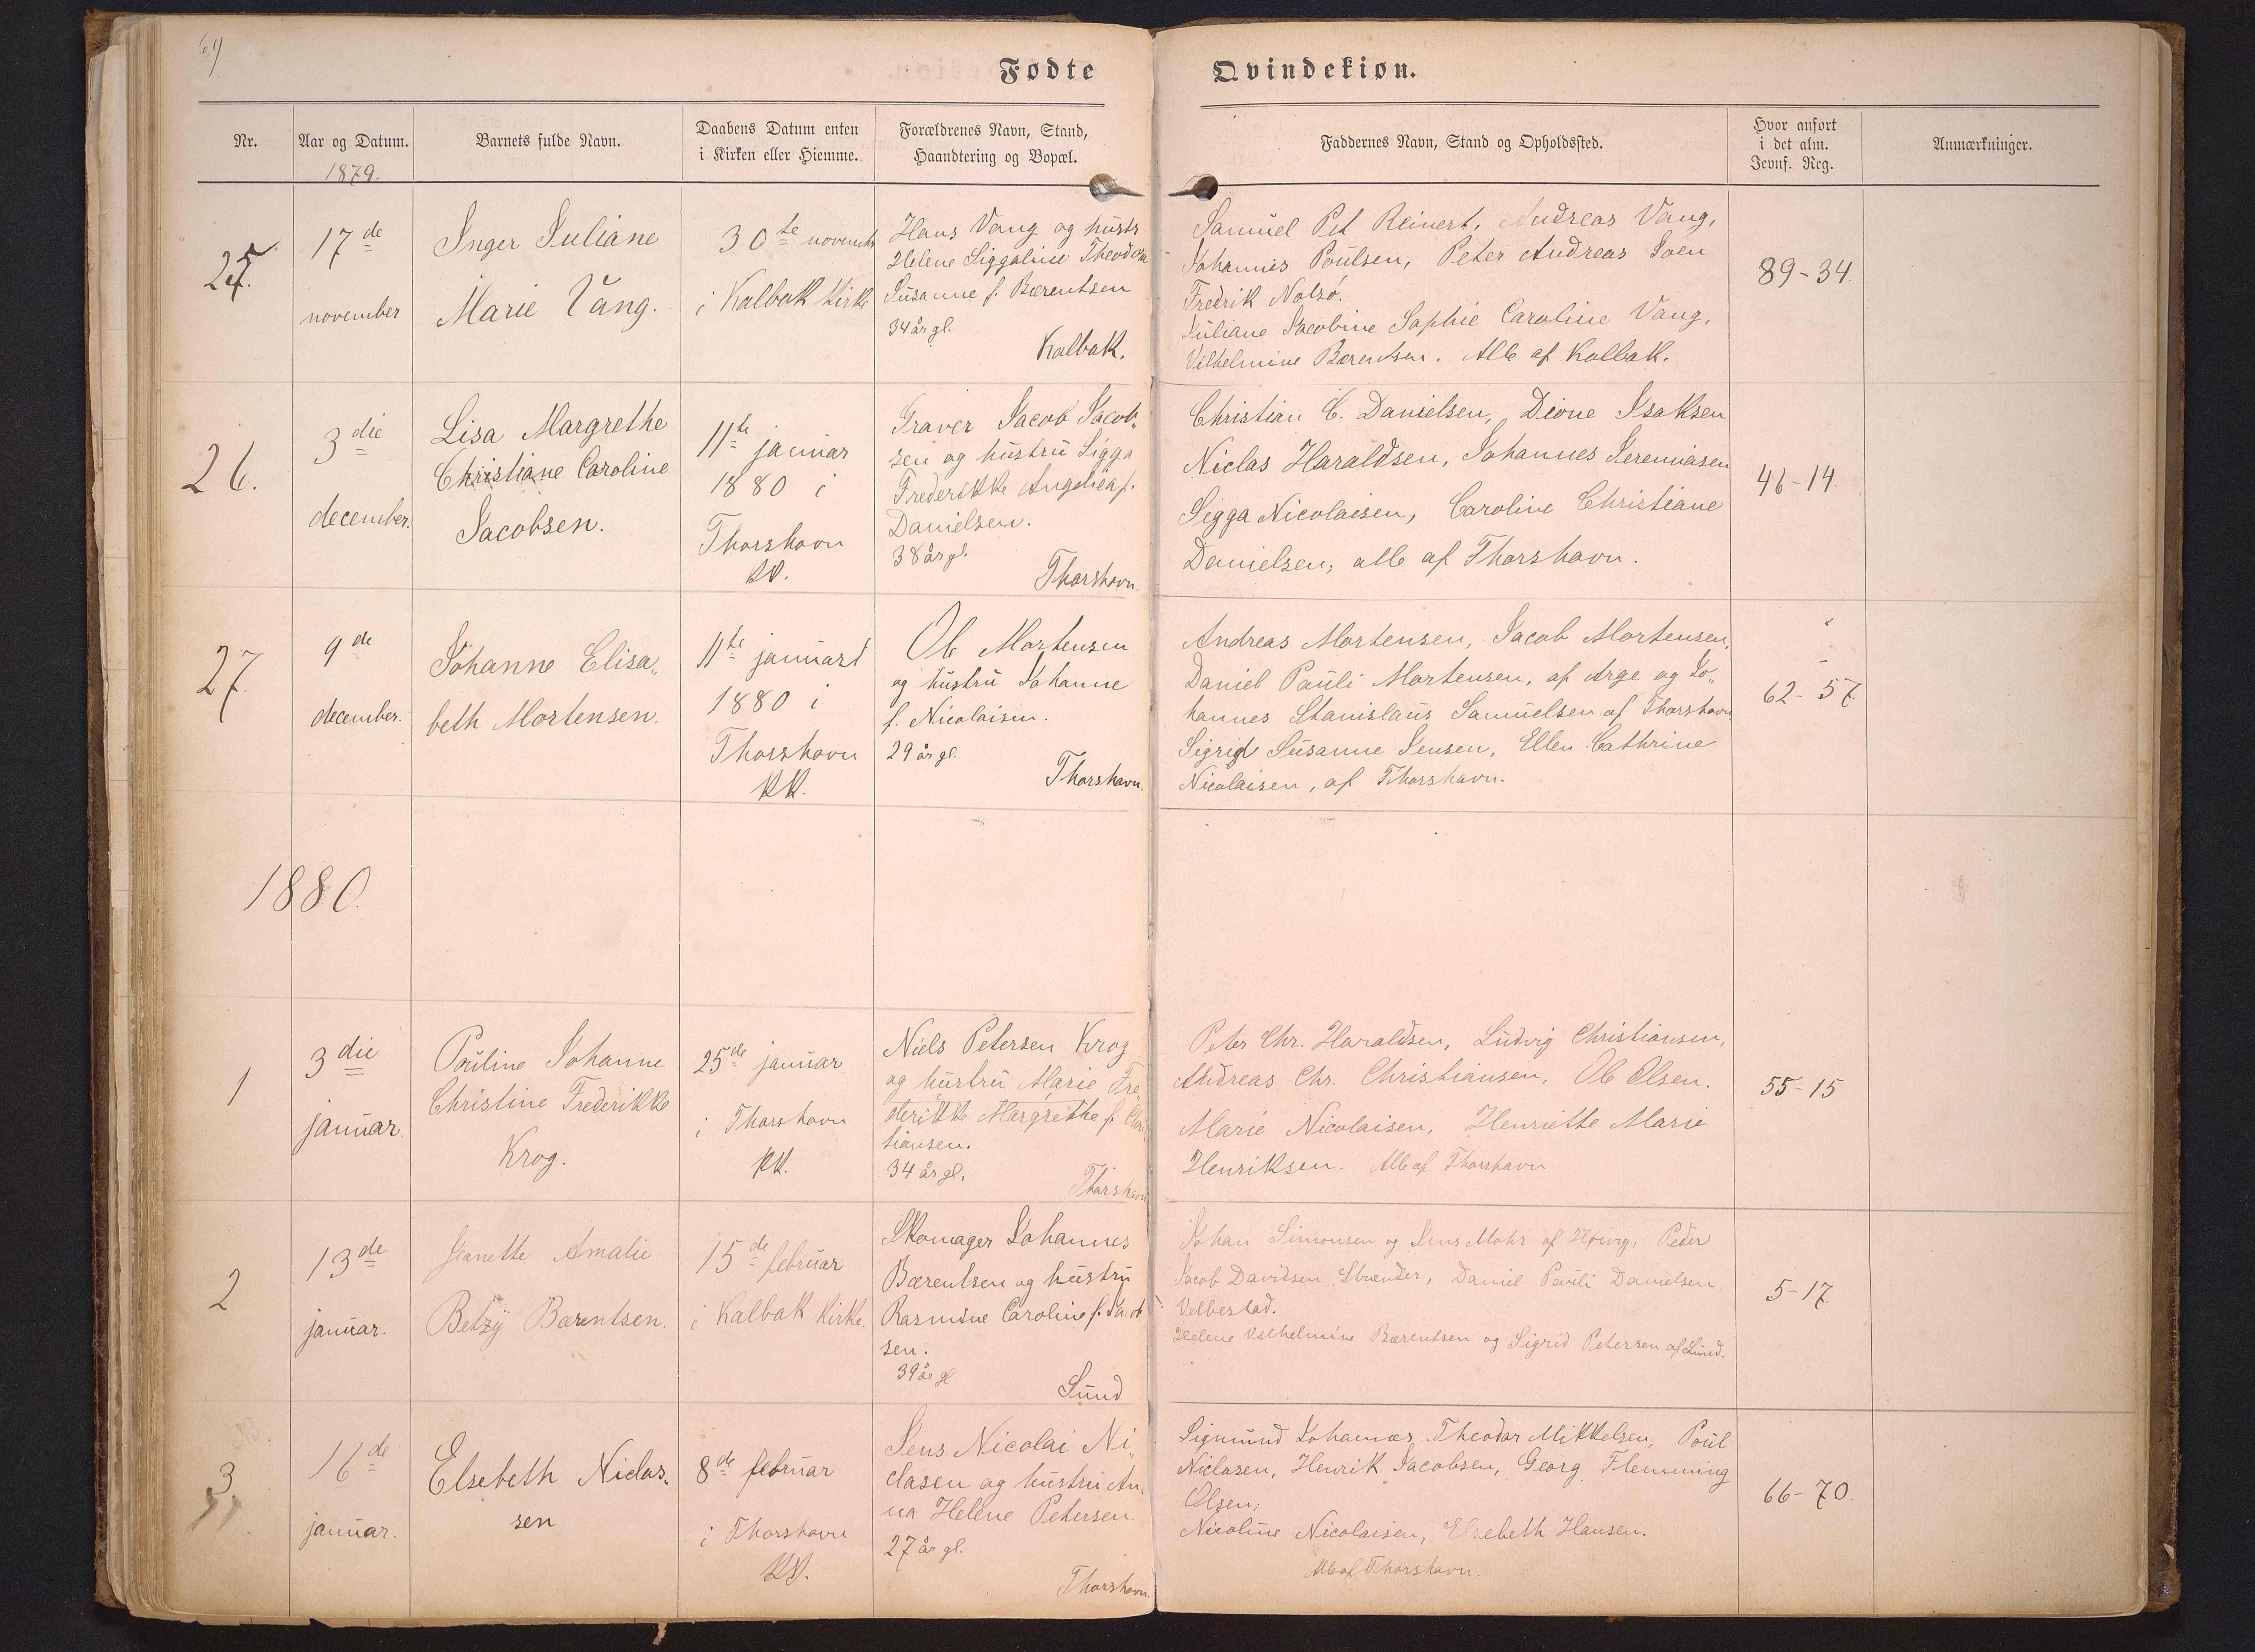 Fødte Qvindekiøn.
Nr.
Aar og Datum.
1879.
Barnets fulde Navn.
Daabens Datum enten
i Kirken eller Hiemme.
Forældrenes Navn, Stand,
Haandtering og Bopæl.
Faddernes Navn, Stand og Opholdssted.
Hvor anført
i det alm.
Jevnf. Reg.
Anmærkninger.
25.
17de
november
Inger Juliane
Marie Vang.
30te novembr
i Kalbak Kirke
Hans Vang og hustr
Helene Siggaline Theodora
Susanne f. Bærentsen
34 år gl.
Kalbak.
Samuel Pet Reinert, Andreas Vang,
Johannes Poulsen, Peter Andreas Joen
Fredrik Nolsø.
Juliane Jacobine Sophie Caroline Vang,
Vilhelmine Bærentsen. Alle af Kalbak.
89-34.
26.
3die
december.
Lisa Margrethe
Christiane Caroline
Jacobsen.
11te januar
1880 i
Thorshavn
KK.
Graver Jacob Jacob„
sen og hustru Sigga
Frederikke Angelica f.
Danielsen.
38 år gl.
Thorshavn.
Christian C. Danielsen, Dione Isaksen
Niclas Haraldsen, Johannes Jeremiasen
Sigga Nicolaisen, Caroline Christiane
Danielsen, alle af Thorshavn.
46-14.
27.
9de
december.
Johanne Elisa„
beth Mortensen.
11te januar
1880 i
Thorshavn
KK.
Ole Mortensen
og hustru Johanne
f. Nicolaisen.
29 år gl.
Thorshavn.
Andreas Mortensen, Jacob Mortensen,
Daniel Pauli Mortensen, af Arge og Jo„
hannes Stanislaus Samuelsen af Thorshavn
Sigrid Susanne Jensen, Ellen Cathrine
Nicolaisen, af Thorshavn.
62-57.
1880.
1
3die
januar.
Pouline Johanne
Christine Frederikke
Krog.
25de januar
i Thorshavn
KK.
Niels Petersen Krog
og hustru Marie Fre„
derikke Margrethe f. Chri
tiansen.
34 år gl.
Thorshavn
Peter Chr. Haraldsen, Ludvig Christiansen,
Andreas Chr. Christiansen, Ole Olsen.
Marie Nicolaisen, Henriette Marie
Henriksen. Alle af Thorshavn
55-15
2
13de
januar.
Jeanette Amalie
Betzy Bærentsen.
15de februar
i Kalbak Kirke.
Skomager Johannes
Bærentsen og hustru
Rasmine Caroline f. Jacob
sen.
39 år gl
Sund
Johan Simonsen og Jens Mohr af Høivig, Peder
Jacob Davidsen Strænder, Daniel Pauli Danielsen
Velbestad.
Helene Vilhelmine Bærentsen og Sigrid Petersen af Sund.
5-17.
3
16de
januar.
Elsebeth Niclas„
sen
8de februar
i Thorshavn
KK.
Jens Nicolai Ni„
clasen og hustru An„
na Helene Petersen.
27 år gl.
Thorshavn.
Sigmund Johannes Theodor Mikkelsen, Poul
Niclasen, Henrik Jacobsen, Georg Flemming
Olsen;
Nicoline Nicolaisen, Elsebeth Hansen.
Alle af Thorshavn.
66-70.